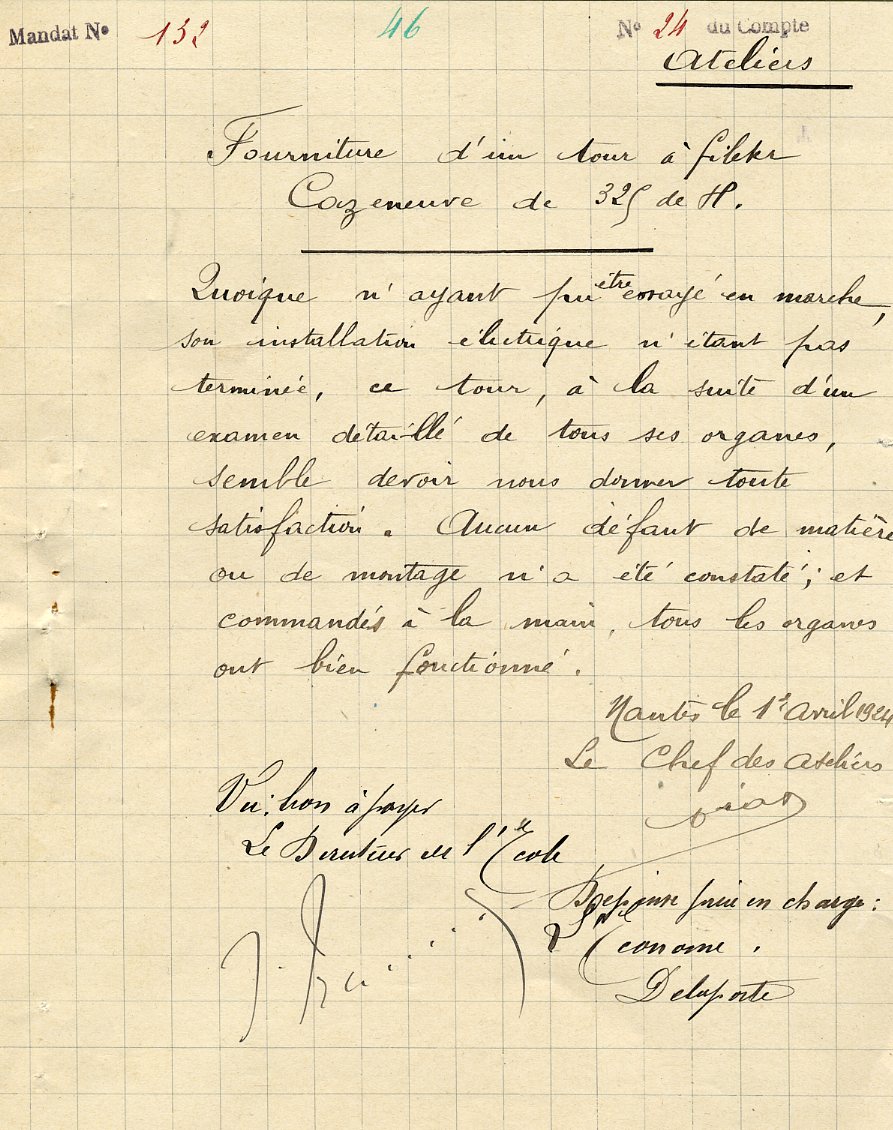 Mandat Nº 132 46 Nº 24 du Compte
Ateliers
Fourniture d'un tour à fileter
Cazeneuve de 325 de H.
Quoique n'ayant pu être essayé en marche,
son installation électrique n'étant pas
terminée, ce tour, à la suite d'un
examen détaillé de tous ses organes,
semble devoir nous donner toute
satisfaction. Aucun défaut de matière
ou de montage n'a été constaté; et
commandés à la main, tous les organes
ont bien fonctionné.
Nantes le 1er avril 1924
Le Chef des ateliers
Vu: bon à payer
Le Directeur de l'Ecole
Dépense prise en charge:
L'Econome.
Delaporte